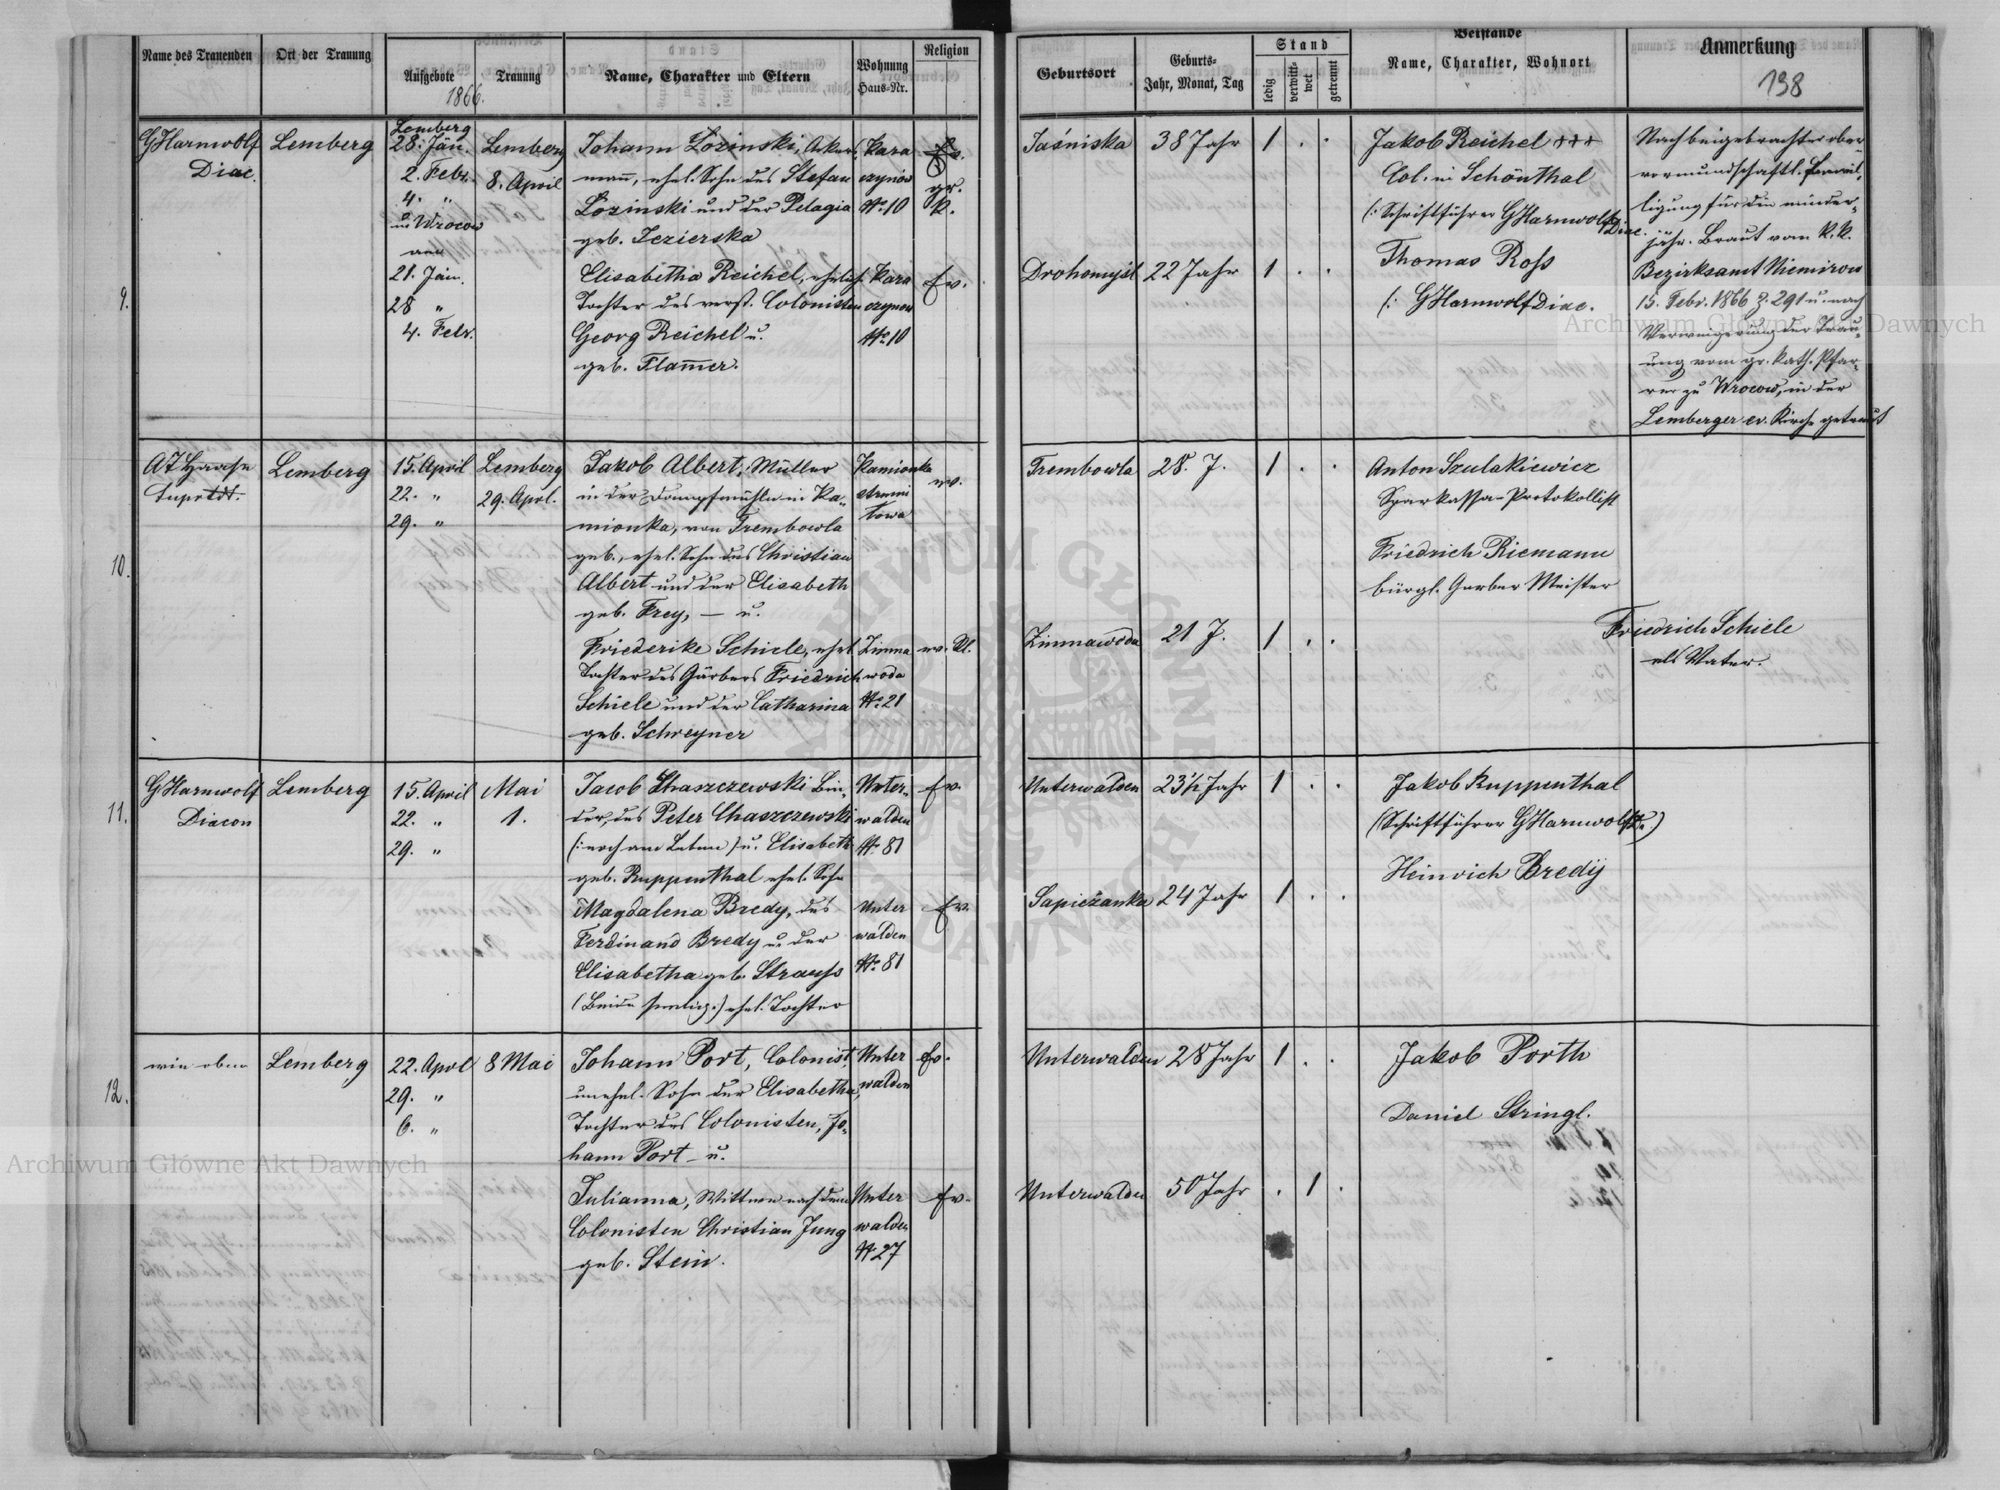 Name des Trauenden
Ort der Trauung
Aufgebote
Trauung
1866.
Name, Charakter und Eltern
Wohnung
Haus-Nr.
Religion
Geburtsort
Geburts-
Jahr, Monat, Tag
Stand
ledig
verwitt-
wet
getrennt
Beistände
Name, Charakter, Wohnort
Anmerkung
198
9.
GHarnwolf
Diac.
Lemberg
Lemberg
28. Jän.
2. Febr.
4. "
u Wrocow
am
21. Jän.
28 "
4. Febr.
Lemberg
8. April
Johann Łozinski, Ackers
mañ, ehel. Sohn des Stefan
Łozinski und der Pelagia
geb. Jezierska
Elisabetha Reichel, ehelich.
Tochter des verst. Colonisten
Georg Reichel u.
geb. Flam̄er.
Kara
czynów
No 10
Kara
czynow
No 10
gr.
k.
Ev.
Jaśniska
38 Jahr
1 . .
Drohomyśl
22 Jahr
1 . .
Jakob Reichel +++
Col. in Schönthal
(: Schriftführer GHarnwolf Diac.
Thomas Roß
(: GHarnwolf Diac.
Nach beigebrachter ober-
vormundschaftl. Bewil-
ligung für die minder-
jähr. Braut vom k.k.
Bezirksamt Niemirow
15. Febr. 1866 Z. 291 u. nach
Verweigerung der Trau-
ung vom gr. kath. Pfar-
rer zu Wrocow, in der
Lemberger ev. Kirche getraut
10.
AJHaase
Suprtdt.
Lemberg
15. April
22. "
29. "
Lemberg
29. Aprl.
Jakob Albert, Müller
in der Dampfmühle in Ka-
mionka, von Trembowla
geb., ehel. Sohn des Christian
Albert und der Elisabeth
geb. Frey, — u.
Friederike Schiele, ehel
Tochter des Gärbers Friedrich
Schiele und der Catharina
geb. Schreyner
Kamionka
strumi
łowa
Zimna
woda
No 21
ev.
ev. Rl.
Trembowla
28. J.
1 . .
Zimnawoda
21 J.
1 . .
Anton Szulakiewicz
Sparkassa-Protokollist
Friedrich Riemann
bürgl. Garber Meister
Friedrich Schiele
als Vater.
11.
GHarnwolf
Diacon
Lemberg
15. April
22. "
29. "
Mai
1.
Jacob Chaszczewski Bin-
der, des Peter Chaszczewski
(: noch am Leben) u. Elisabeth
geb. Ruppenthal ehel. Sohn
Magdalena Bredy, des
Ferdinand Bredy u. der
Elisabetha geb. Strauß
(Beide seelig:) ehel. Tochter
Unter-
walden
No 81
Unter
walden
No 81
Ev.
Ev.
Unterwalden
23½ Jahr
1 . .
Sapieżanka
24 Jahr
1 . .
Jakob Ruppenthal
(Schriftführer GHarnwolf Dc.)
Heinrich Bredy
12.
wie oben
Lemberg
22. Aprl
29. "
6. "
8 Mai
Johann Port, Colonist,
unehel. Sohn der Elisabetha,
Tochter des Colonisten, Jo-
hann Port u.
Julianna, Wittwe nach dem
Colonisten Christian Jung
geb. Stein.
Unter
walden
Unter
walden
No 27
Ev.
Ev.
Unterwalden
28 Jahr
1 . .
Unterwalden
50 Jahr
. 1 .
Jakob Porth
Daniel Stringl.
Archiwum Główne Akt Dawnych
Archiwum Główne Akt Dawnych
ARCHIWUM GŁÓWNE AKT DAWNYCH